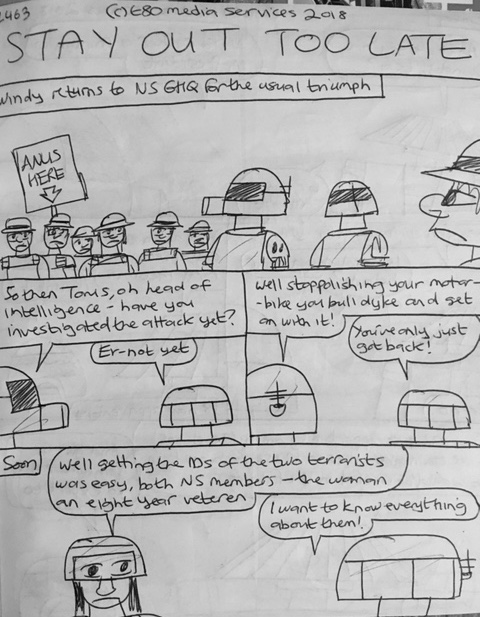 2463
(C) E80 media services 2018
STAY OUT TOO LATE
Windy returns to NS GHQ for the usual triumph
ANUS
HERE
So then Toms, oh head of
intelligence - have you
investigated the attack yet?
Er - not yet
Well stop polishing your motor-
-bike you bull dyke and get
on with it!
You've only just
got back!
Soon
Well getting the IDs of the two terrorists
was easy, both NS members - the woman
an eight year veteren
I want to know everything
about them!